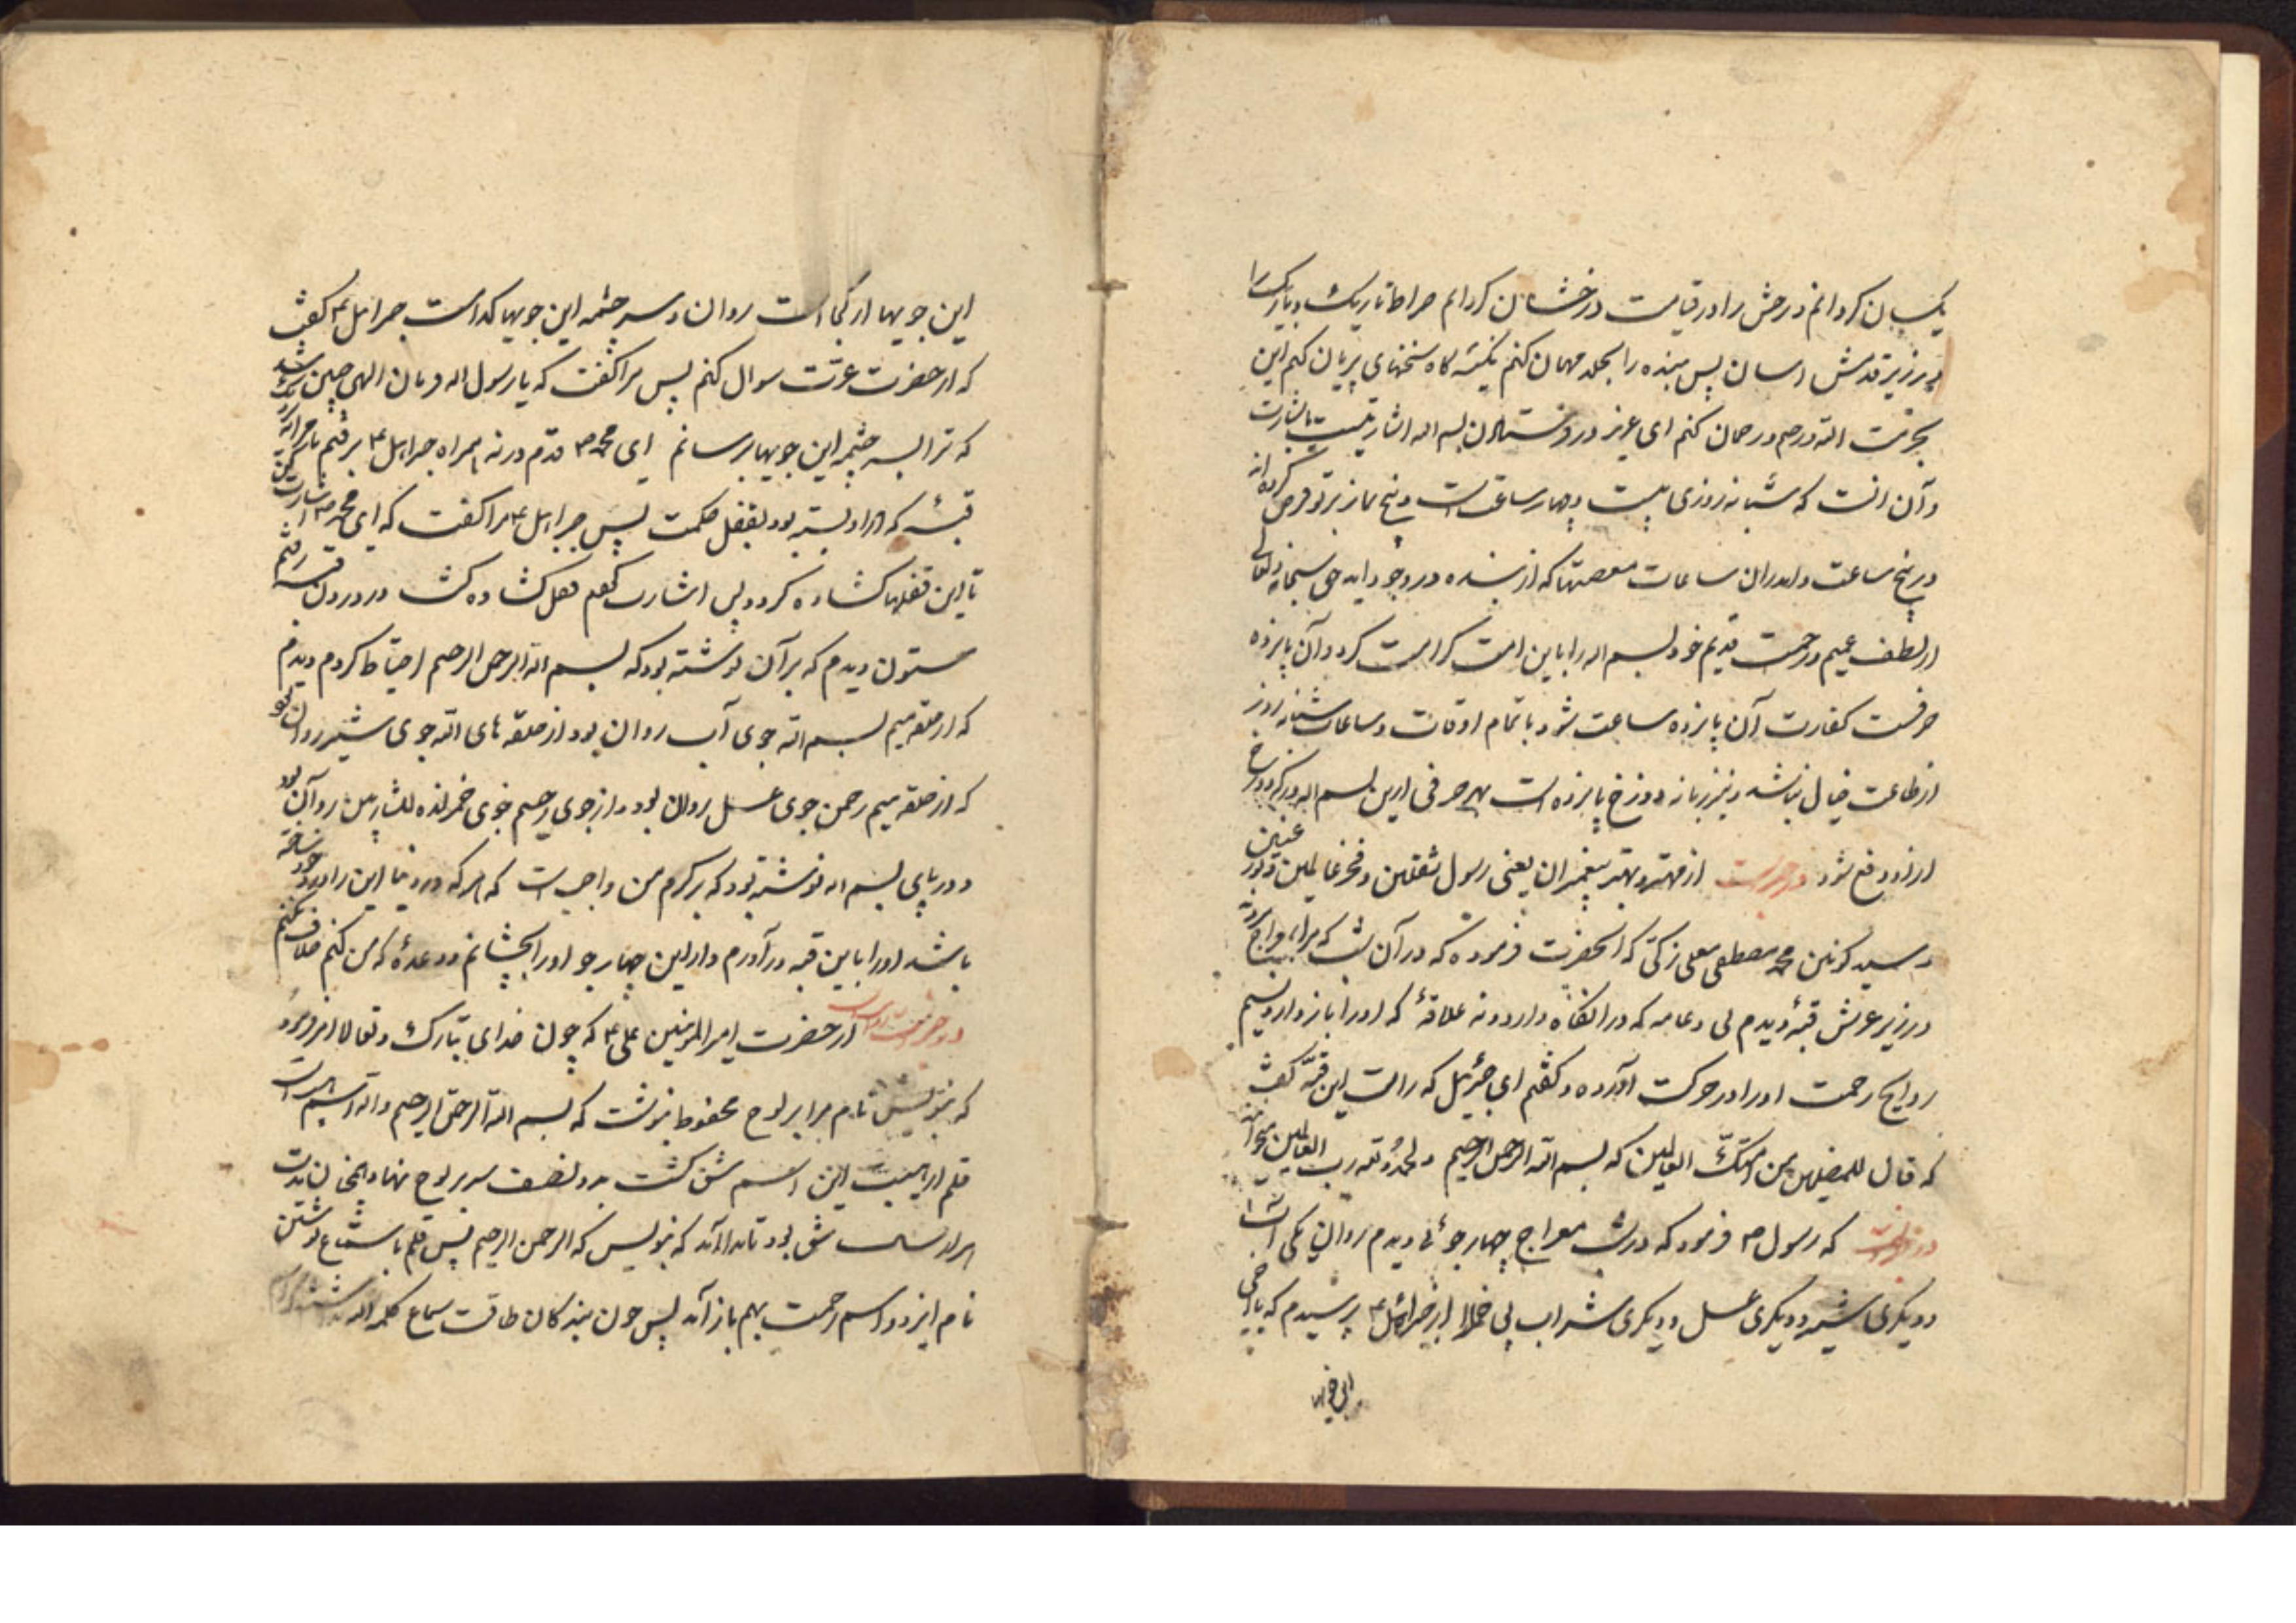 یکسان کردانم و رحش را در قیامت درخشان کردانم صراط تاریک و باریک را
در زیر قدمش اسان پس بنده را بجلد مهمان کنم یکشه کاه سختهای پریان کنم این
بحرمت الله و رحیم و رحمان کنم ای عزیز در بسم الله اشارتیست بشارت
و آن انست که شبانه روزی بیست و چهار ساعتست و پنج نماز بر تو فرض کرده اند
در پنج ساعت و اندران ساعات معصیتها که از بنده در وجود اید حق سبحانه و تعالی
از لطف عمیم و رحمت قدیم خود بسم الله را باین امت کرامت کرد و آن پانزده
حرفست کفارت آن پانزده ساعت شود با تمام اوقات و ساعات شبانه روز
از طاعت خیال نباشد و نیز زبانه دوزخ پانزده است بهر حرفی ازین بسم الله در کردوزخ
از او دفع شود در خبرست از مهتر و بهتر پیغمبران یعنی رسول ثقلین و فخر عالمین و نور عینین
و سید کونین محمد مصطفی معلی زکی که انحضرت فرموده که در آن شب که مرا بمعراج بردند
در زیر عرش قبهٔ دیدم بی دعامه که در انکاه دارد و نه علاقهٔ که او را باز دارد نسیم
روایح رحمت او را در حرکت آورده و کفتم ای جبرئیل که راست این قبه کفت
که قال للمضلین بمن امتک القایلین که بسم الله الرحمن الرحیم و الحمد لله رب العالمین
در خبرست که رسول ص فرمود که در شب معراج چهار جوئی دیدم روان یکی آب
و دیکری شیر و دیکری عسل و دیکری شراب پی از جبرائیل ع پرسیدم که یا اخی
این جویها
این جویها از کجا است روان و سر چشمه این جویها کدامست جبرائیل ع کفت
که از حضرت عزت سوال کنم پس مرا کفت که یا رسول الله فرمان الهی چنین شد
که ترا بسر چشمه این جویها برسانم ای محمد ص قدم در نه همراه جبرائیل ع برفتم تا
قبهٔ که در او بسته بود بقفل حکمت پس جبرائیل ع مرا کفت که ای محمد ص اشارت کن
تا این قفلها کشاده کردد پس اشارت کفتم قفل کشاده کشت و در درون قبه رفتم
ستون دیدم که بر آن نوشته بود که بسم الله الرحمن الرحیم احتیاط کردم دیدم
که از حلقه میم بسم الله جوی آب روان بود از حلقه های الله جوی شیر روان بود
که از حلقه میم رحمن جوی عسل روان بود و از جوی رحیم جوی خمر لذة للشاربین روان بود
و در پای بسم الله نوشته بود که بر کرم من واجب است که هر که در دنیا این را ورد خود ساخته
باشد او را باین قبه در آورم و از این چهار جو او را بچشانم و وعدهٔ که من کنم خلاف نکنم
در خبرست از حضرت امیر المؤمنین علی ع که چون خدای تبارک و تعالا امر فرمود
که بنویس نام مرا بر لوح محفوظ بنوشت که بسم الله الرحمن الرحیم و الله اسم
قلم از هیبت این اسم شق کشت بدو نصف سر بر لوح نهاد
هزار سال شق بود تا ندا آمد که بنویس که الرحمن الرحیم پس قلم باستماع نوشتن
نام ایزد و اسم رحمت بهم باز آمد پس چون بندکان طاقت سماع کلمه الله